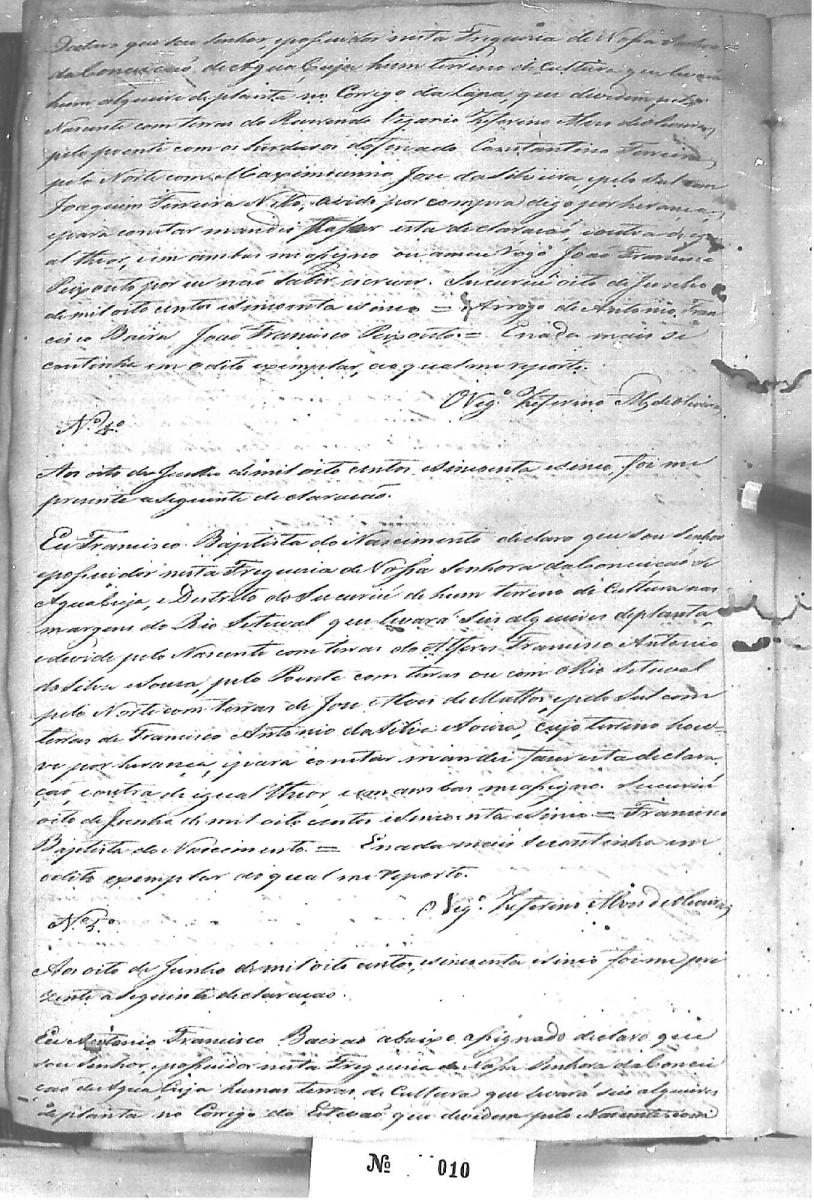 Declaro que sou senhor, epossuidor nesta Freguesia de Nossa Senhora
da Conceicaõ de Agua Çuja hum terreno de Cultura que levará
hum alqueire de planta no Corigo da Lapa, que devidem pelo
Nascente com terras do Reverendo Vigario Zeferino Alves de Oliveira
pelo poente com os herdeiros do fincado Constantino Ferreira
pelo Norte com Maximianno Jose da Silveira epelo Sul com
Joaquim Ferreira Netto, avido por compra digo por herança,
epara constar mandei passar esta declaracaõ, eoutra de igu
al theor, e em ambas me assigno ou a meu rogo Joaõ Francisco
Peixouto por eu naõ saber escrever. Sucuriú oito de Junho
de mil oito centos esincoenta esinco = Arrogo de Antonio Fran
cisco Baira, Joaõ Francisco Peixouto = Enada mais se
continha em o dito exemplar, ao qual me reporto.
O Vig.º Zeferino Alz de Oliveira
N.º 4.º
Aos oito de Junho de mil oito centos esincoenta esinco, foi me
presente a seguinte declaracaõ.
Eu Francisco Baptista do Nascimento declaro que sou Senhor
epossuidor nesta Freguesia de Nossa Senhora da Conceicaõ de
Agua Çuja, e Destrito do Sucuriú de hum terreno de Cultura nas
margens do Rio Setuval que levará Seis alqueires de planta,
edevide pelo Nascente com terras do Alferes Francisco Antonio
da Silva e Sousa, pelo Poente com terras ou com o Rio Setuval
pelo Norte com terras de Jose Alves de Mattos epelo Sul com
terras de Francisco Antonio da Silva e Souza, cujo terreno hou-
ve por herança, epara constar mandei fazer esta declara
çaõ, eoutra de igual theor, e em ambas me assigno. Sucuriú
oito de Junho de mil oito centos esincoenta esinco = Francisco
Baptista do Nascimento = Enada mais se continha em
o dito exemplar ao qual me reporto.
O Vig.º Zeferino Alves de Oliveira
N.º 5.º
Aos oito de Junho de mil oito centos, esincoenta esinco foi me pre
zente a seguinte declaração.
Eu Antonio Francisco Bairaõ abaixo assignado declaro que
sou Senhor, epossuidor nesta Freguesia de Nossa Senhora da Concei
çaõ de Agua Çuja humas terras de Cultura que levará seis alqueires
de planta no Corigo do Estevaõ que devidem pelo Nascente com
Nº 010